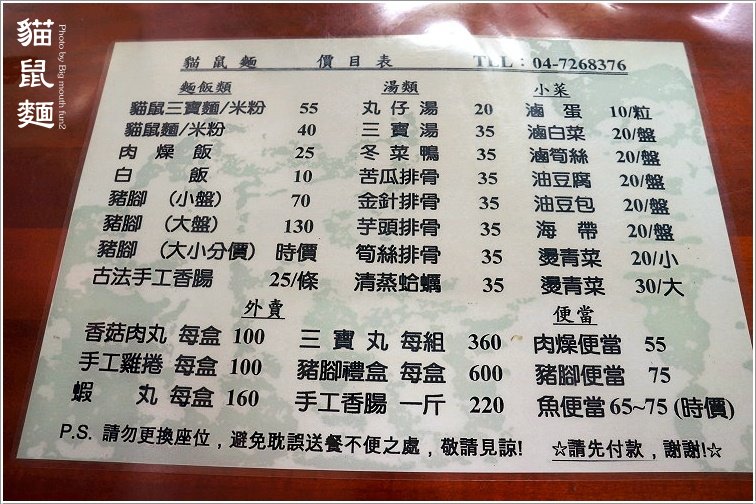 貓鼠麵
Photo by Big mouth fun2
貓鼠麵 價目表 TEL：04-7268376
麵飯類 湯類 小菜
貓鼠三寶麵/米粉 55 丸仔湯 20 滷蛋 10/粒
貓鼠麵/米粉 40 三寶湯 35 滷白菜 20/盤
肉燥飯 25 冬菜鴨 35 滷筍絲 20/盤
白飯 10 苦瓜排骨 35 油豆腐 20/盤
豬腳（小盤） 70 金針排骨 35 油豆包 20/盤
豬腳（大盤） 130 芋頭排骨 35 海帶 20/盤
豬腳（大小分價） 時價 筍絲排骨 35 燙青菜 20/小
古法手工香腸 25/條 清蒸蛤蠣 35 燙青菜 30/大
外賣 便當
香菇肉丸 每盒 100 三寶丸 每組 360 肉燥便當 55
手工雞捲 每盒 100 豬腳禮盒 每盒 600 豬腳便當 75
蝦丸 每盒 160 手工香腸 一斤 220 魚便當 65~75 (時價)
P.S. 請勿更換座位，避免耽誤送餐不便之處，敬請見諒! ☆請先付款，謝謝!☆